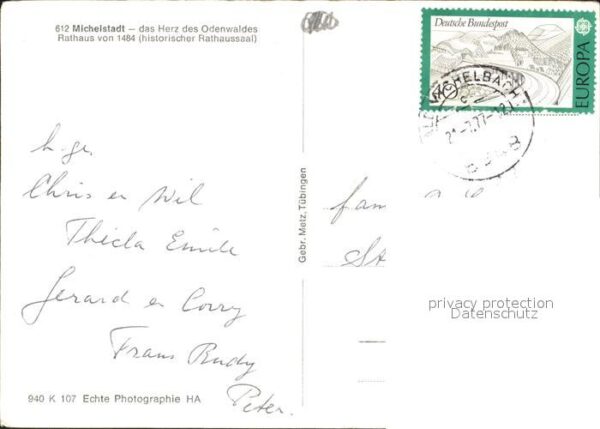 612 Michelstadt – das Herz des Odenwaldes
Rathaus von 1484 (historischer Rathaussaal)
Deutsche Bundespost
EUROPA
h. gr.
Chris en Wil
Thecla Emile
Gerard en Corry
Frans Rudy
Peter.
940 K 107 Echte Photographie HA
Gebr. Metz, Tübingen
fam
St
privacy protection
Datenschutz